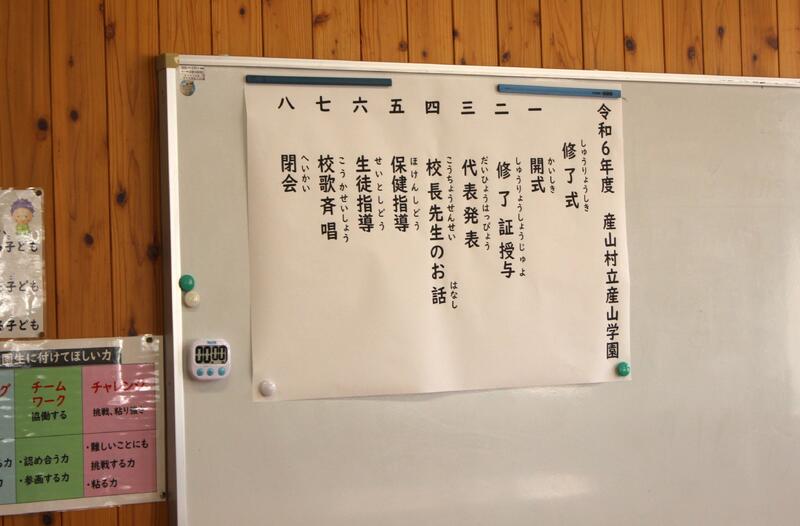 令和6年度　産山村立産山学園
修了式
しゅうりょうしき
一　開式
かいしき
二　修了証授与
しゅうりょうしょうじゅよ
三　代表発表
だいひょうはっぴょう
四　校長先生のお話
こうちょうせんせい　はなし
五　保健指導
ほけんしどう
六　生徒指導
せいとしどう
七　校歌斉唱
こうかせいしょう
八　閉会
へいかい
00:00
子ども
子ども
子ども
園生に付けてほしい力
チーム
ワーク
協働する
・認め合う力
・参画する力
チャレンジ
挑戦、粘り強さ
・難しいことにも
挑戦する力
・粘る力